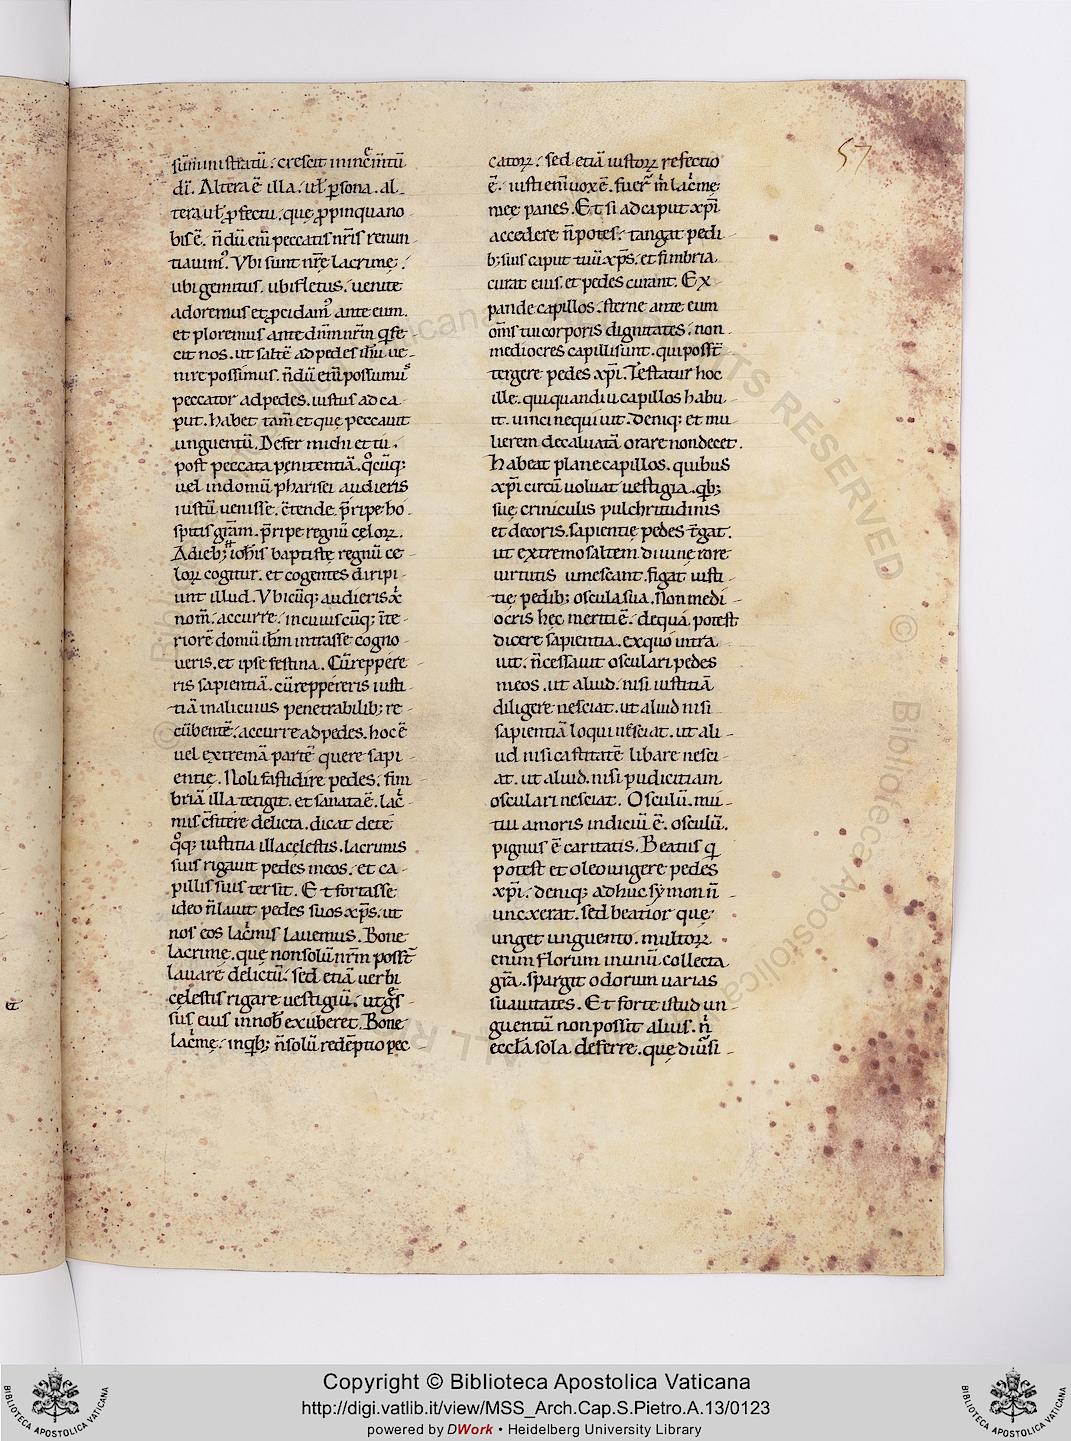 57
sūministratū. crescit inincm̄tū
di. Altera ē illa. ul̄ p̱sona. al
tera ul̄ ꝓfectu. quę ꝓpinquano
bis ē. n̄dū eni̅ peccatis nr̄is renun
tiauim᾽. Vbi sunt nr̄ę lacrimę.
ubi gemitus. ubi fletus. uenite
adoremus et ꝓcidam᾽ ante eum.
et ploremus ante dn̄m nr̄m q̱ fe
cit nos. ut saltē ad pedes ih̄u ue
nire possimus. n̄dū eni̅ possumus
peccator ad pedes. iustus ad ca
put. habet tam̄ et que peccauit
unguentū. Defer michi et tu.
post peccata penitentiā. q̊cūq;
uel in domū pharisei audieris
iustū uenisse. c̄tende. p̄ripe ho
spitis grām. p̄ripe regnū celoꝝ.
A dieb; ioh̄is baptistę regnū ce
loꝝ cogitur. et cogentes diripi
unt illud. Vbicūq; audieris xp̄i
nom̄. accurre. in cuiuscūq; īte
riorē domū ih̄m intrasse cogno
ueris. et ipse festina. Cū reppere
ris sapientiā. cū reppereris iusti
tiā in alicuius penetrabilib; re
cūbentē. accurre ad pedes. hoc ē
uel extremā partē quere sapi
entię. Noli fastidire pedes. fim
briā illa tetigit. et sanata ē. lac̄
mis c̄fitere delicta. dicat de te
q̊q; iustitia illa celestis. lacrimis
suis rigauit pedes meos. et ca
pillis suis tersit. Et fortasse
ideo n̄ lauit pedes suos xp̄s. ut
nos eos lac̄mis lauemus. Bone
lacrimę. quę non solū nr̄m poss̄t
lauare delictū. sed etiā uerbi
celestis rigare uestigiū. ut gs̄
sus eius in nob̄ exuberet. Bone
lac̄mę. inq̱b; n̄ solū redēptio pec
catoꝝ. sed etiā iustoꝝ refectio
ē. iusti eni̅ uox ē. fuer̄ m̄ lac̄mę
meę panes. Et si ad caput xp̄i
accedere n̄ potes. tangat pedi
b; suis caput tuū xp̄s. et fimbria
curat eius. et pedes curant. Ex
pande capillos. sterne ante eum
om̄s tui corporis dignitates. non
mediocres capilli sunt. qui poss̄t
tergere pedes xp̄i. Testatur hoc
ille. qui quandiu capillos habu
it. uinci nequiuit. Deniq; et mu
lierem decaluatā orare non decet.
Habeat plane capillos. quibus
xp̄i circū uoluat uestigia. q̱b;
suę criniculis pulchritudinis
et decoris. sapientię pedes t̄gat.
ut extremo saltem diuine rore
uirtutis umescant. figat iusti
tię pedib; oscula sua. Non medi
ocris hec meriti ē. de qua potest
dicere sapientia. ex quo intra
uit. n̄ cessauit osculari pedes
meos. ut aliud. nisi iustitiā
diligere nesciat. ut aliud nisi
sapientiā loqui nesciat. ut ali
ud nisi castitatē libare nesci
at. ut aliud. nisi pudicitiam
osculari nesciat. Osculū. mu
tui amoris indiciū ē. osculū.
pignus ē caritatis. Beatus q̱
potest et oleo ungere pedes
xp̄i. deniq; adhuc symon n̄
unxerat. sed beatior que
unget unguento. multoꝝ
enim florum inunū collecta
grā. spargit odorum uarias
suauitates. Et forte istud un
guentū non possit alius. n̄
eccl̄a sola deferre. quę diuersi
et
Copyright © Biblioteca Apostolica Vaticana
http://digi.vatlib.it/view/MSS_Arch.Cap.S.Pietro.A.13/0123
powered by DWork • Heidelberg University Library
BIBLIOTECA APOSTOLICA VATICANA
BIBLIOTECA APOSTOLICA VATICANA